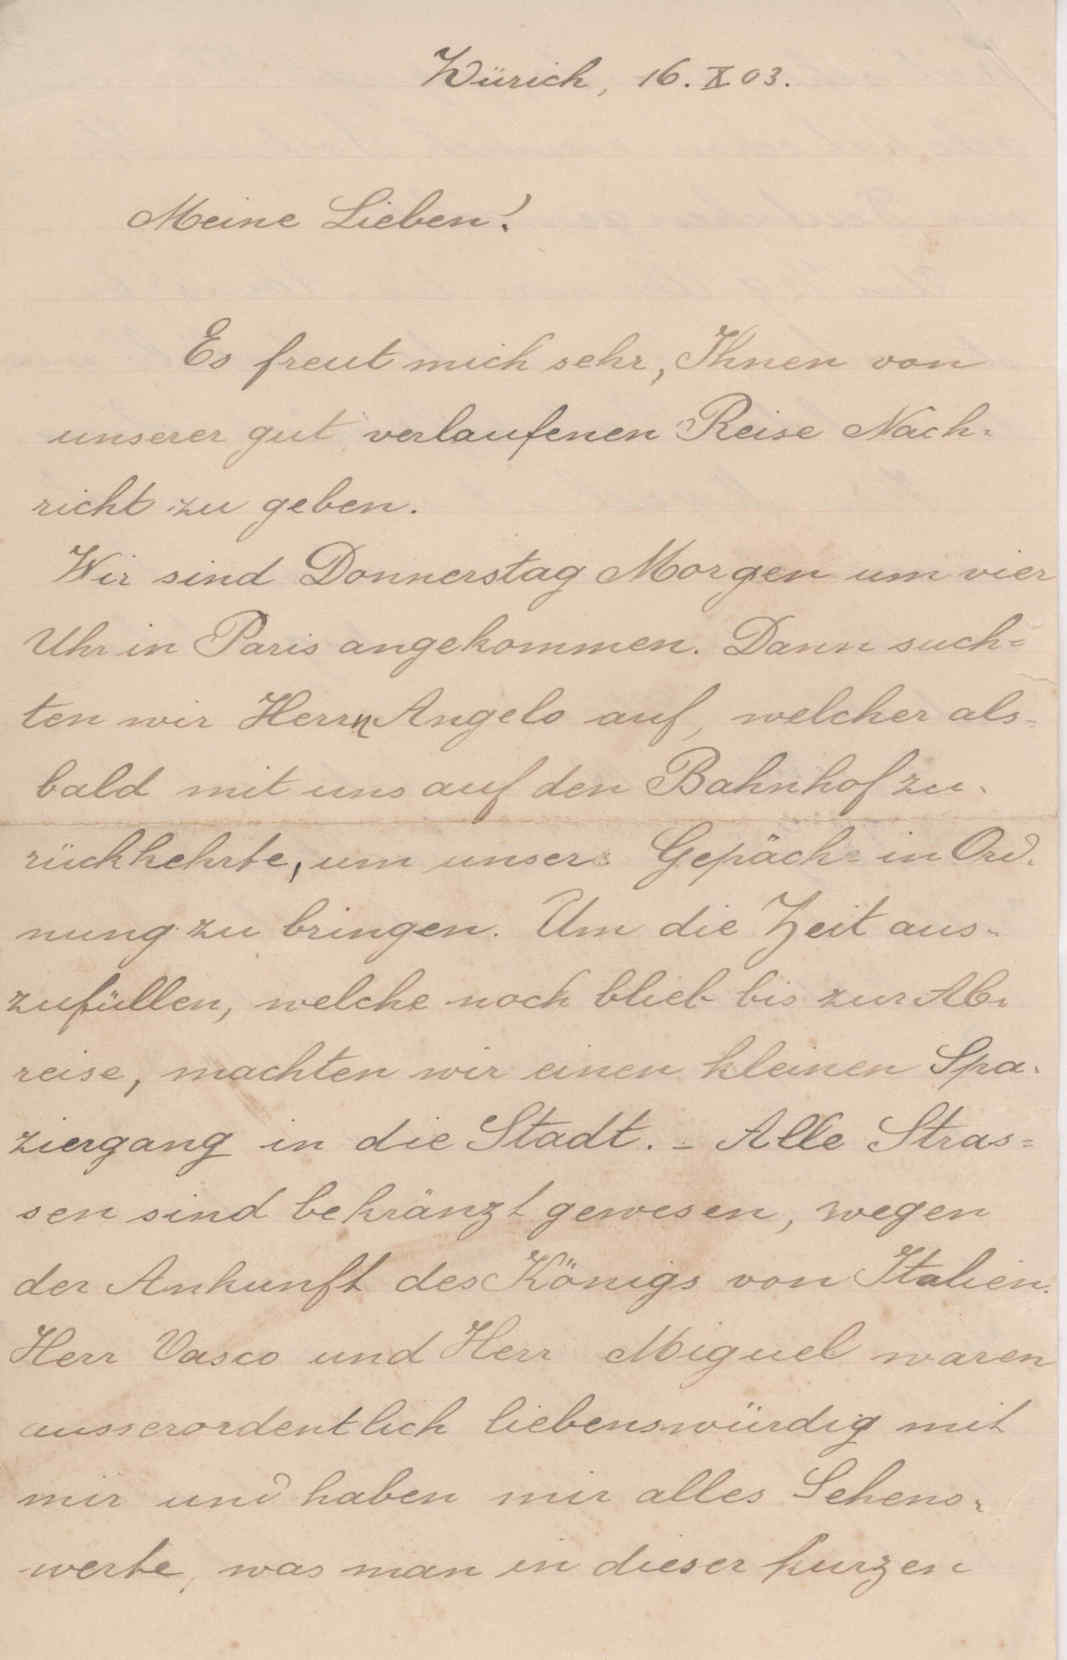 Zürich, 16. X 03.
Meine Lieben!
Es freut mich sehr, Ihnen von
unserer gut verlaufenen Reise Nach-
richt zu geben.
Wir sind Donnerstag Morgen um vier
Uhr in Paris angekommen. Dann such=
ten wir Herrn Angelo auf, welcher als-
bald mit uns auf den Bahnhof zu-
rückkehrte, um unser Gepäck in Ord-
nung zu bringen. Um die Zeit aus-
zufüllen, welche noch blieb bis zur Ab-
reise, machten wir einen kleinen Spa-
ziergang in die Stadt. – Alle Stras=
sen sind bekränzt gewesen, wegen
der Ankunft des Königs von Italien.
Herr Vasco und Herr Miguel waren
ausserordentlich liebenswürdig mit
mir und haben mir alles Sehens-
werte, was man in dieser kurzen